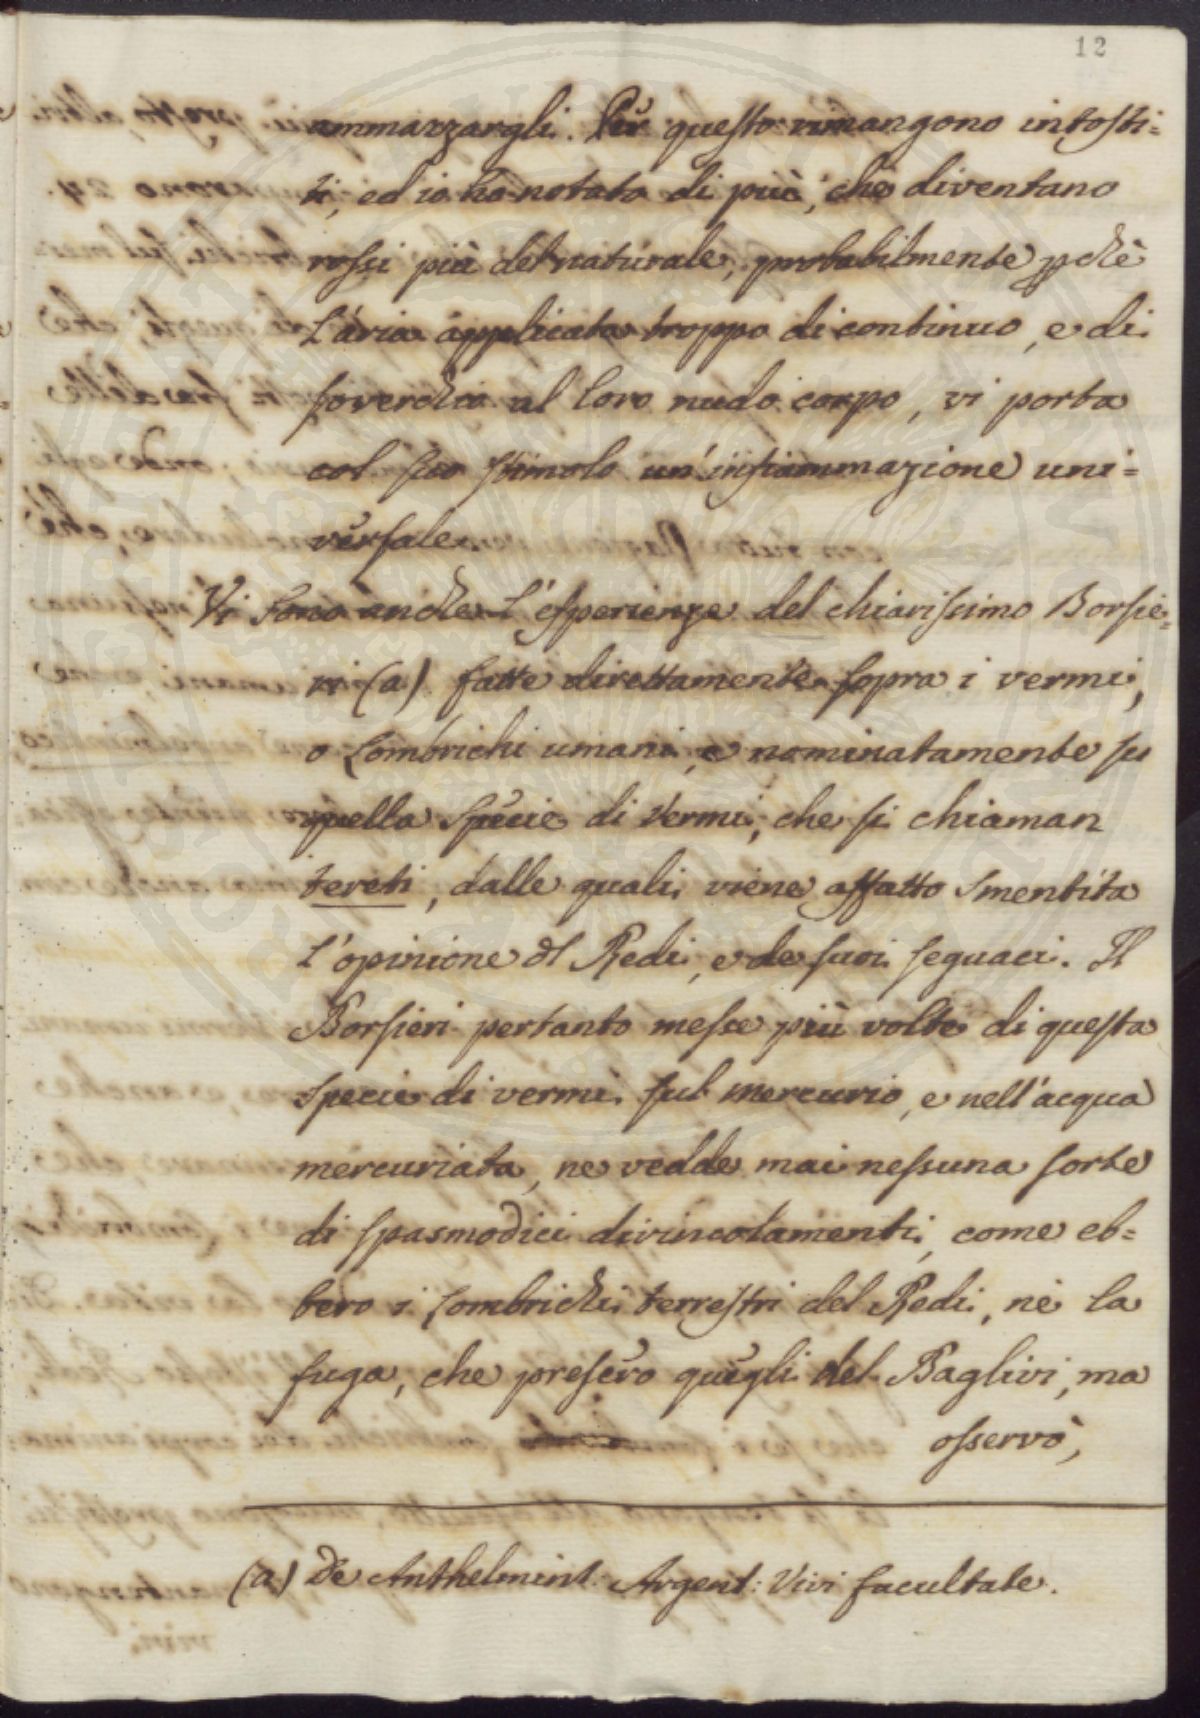 12
ammazzargli. Per questo rimangono intosti=
ti, ed io ho notato di più, che diventano
rossi più del naturale, probabilmente pchè
l'aria applicata troppo di continuo, e di
soverchio al loro nudo corpo, vi porta
col suo stimolo un'infiammazione uni=
versale.
Vi sono anche l'esperienze del chiarissimo Borsie=
ri (a) fatte direttamente sopra i vermi,
o Lombrichi umani, e nominatamente su
quella specie di Vermi, che si chiaman
tereti, dalle quali viene affatto smentita
l'opinione dl Redi, e de suoi seguaci. Il
Borsieri pertanto messe più volte di questa
specie di vermi sul mercurio, e nell'acqua
mercuriata, ne vedde mai nessuna sorte
di spasmodici divincolamenti, come eb=
bero i Lombrichi terrestri del Redi, nè la
fuga, che presero quegli del Baglivi, ma
osservò,
(a) De Anthelmint: Argent: Vivi facultate.